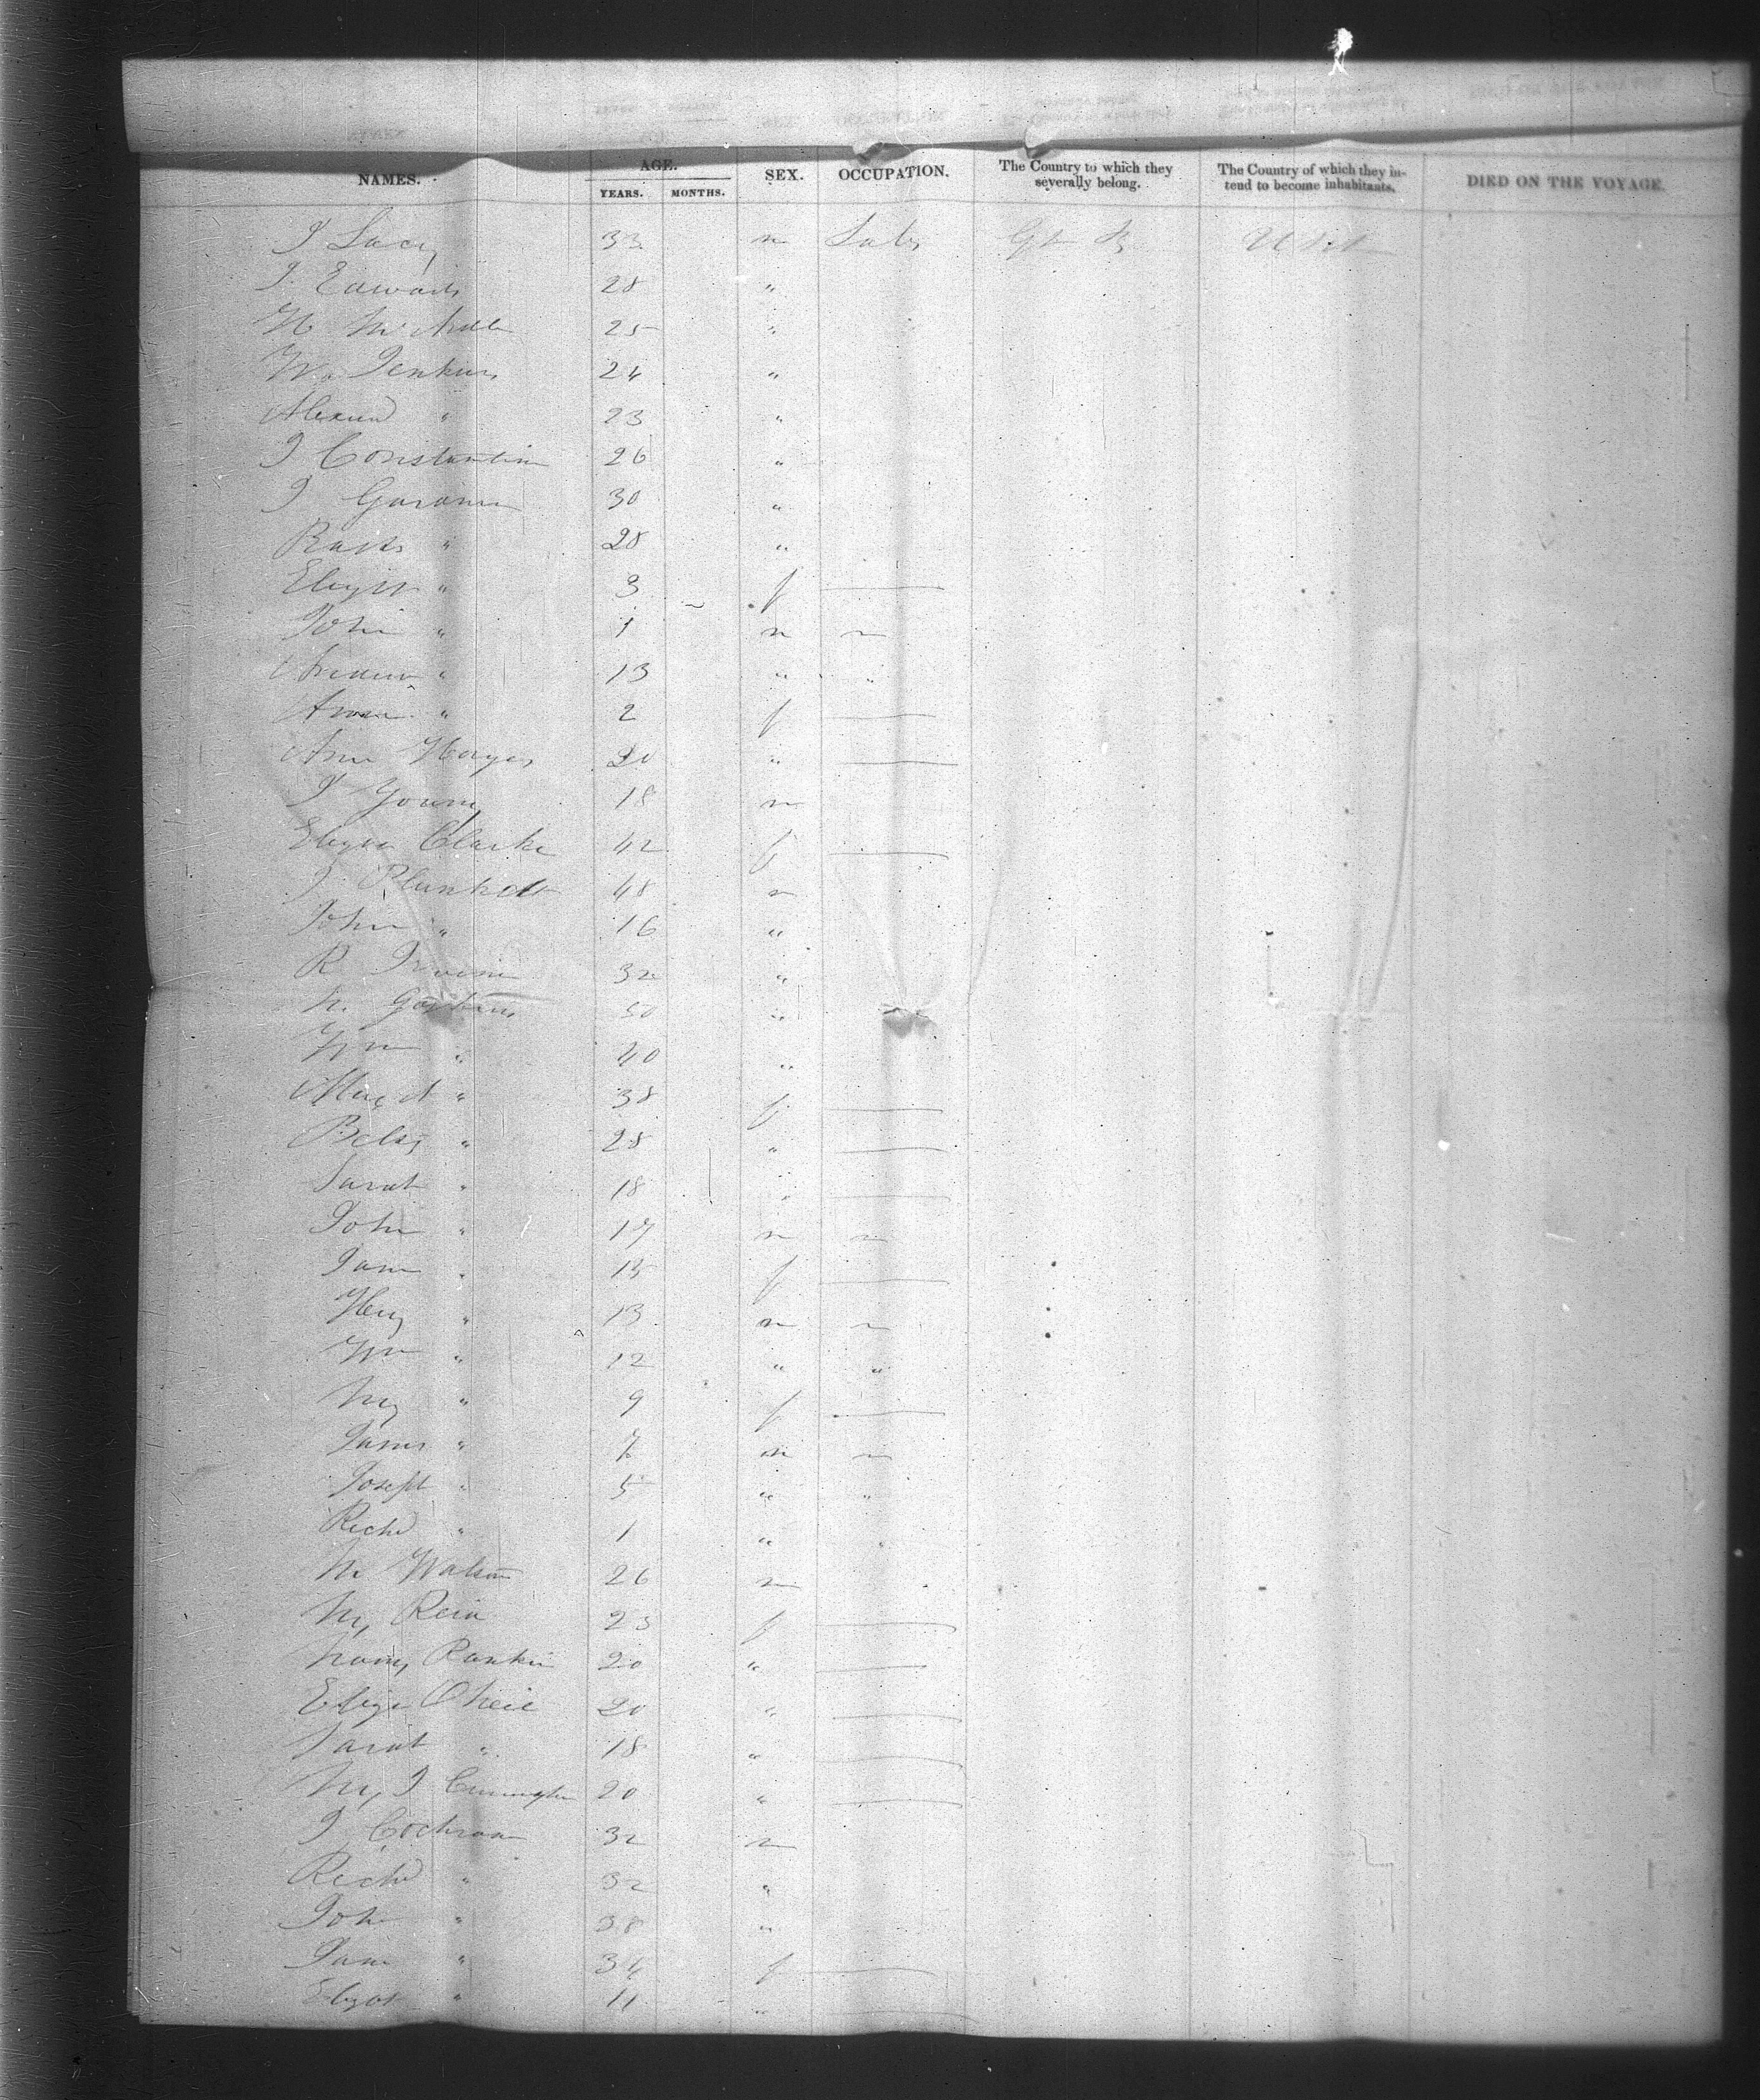 NAMES. AGE. SEX. OCCUPATION. The Country to which they severally belong. The Country of which they intend to become inhabitants. DIED ON THE VOYAGE.
YEARS. MONTHS.
J Lacy 33 m Gt B
J. Edwards 28 "
25 "
W. Jenkins 24 "
Alexand " 23 "
J Constantine 26 "
J Gardner 30 "
" 28 "
" 3 f —
John " 1 m
Andrew " 13 " "
Anne " 2 f —
Ann Hayes 20 " —
J Young 18 m
Eliza Clarke 42 f —
J Plunkett 48 m
John " 16 "
R Irvine 32 "
50 "
Wm " 40 "
Margt " 38 f —
Betsy " 28 " —
Sarah " 18 " —
John " 17 m
Jane " 15 f —
Heny " 13 m
Wm " 12 " "
My " 9 f —
James " 7 m
Joseph " 5 " "
Richd " 1 " "
M Watson 26 m
My Reid 23 f —
Nancy Rankin 20 " —
Eliza ONeil 20 " —
Sarah " 18 " —
My J Cunningham 20 " —
J Cochran 32 m
Richd " 32 "
John " 38 "
Jane " 34 f —
" 11 " —